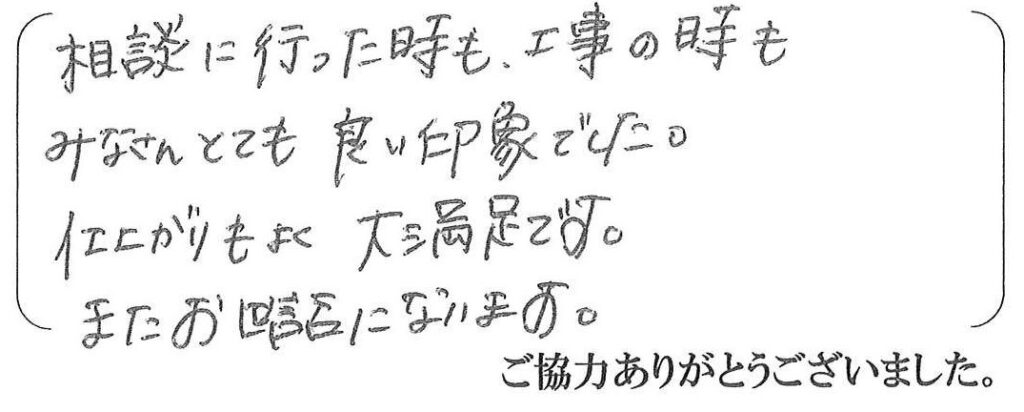 相談に行った時も、工事の時も
みなさんとても良い印象でした。
仕上がりもよく 大満足です。
またお世話になります。
ご協力ありがとうございました。